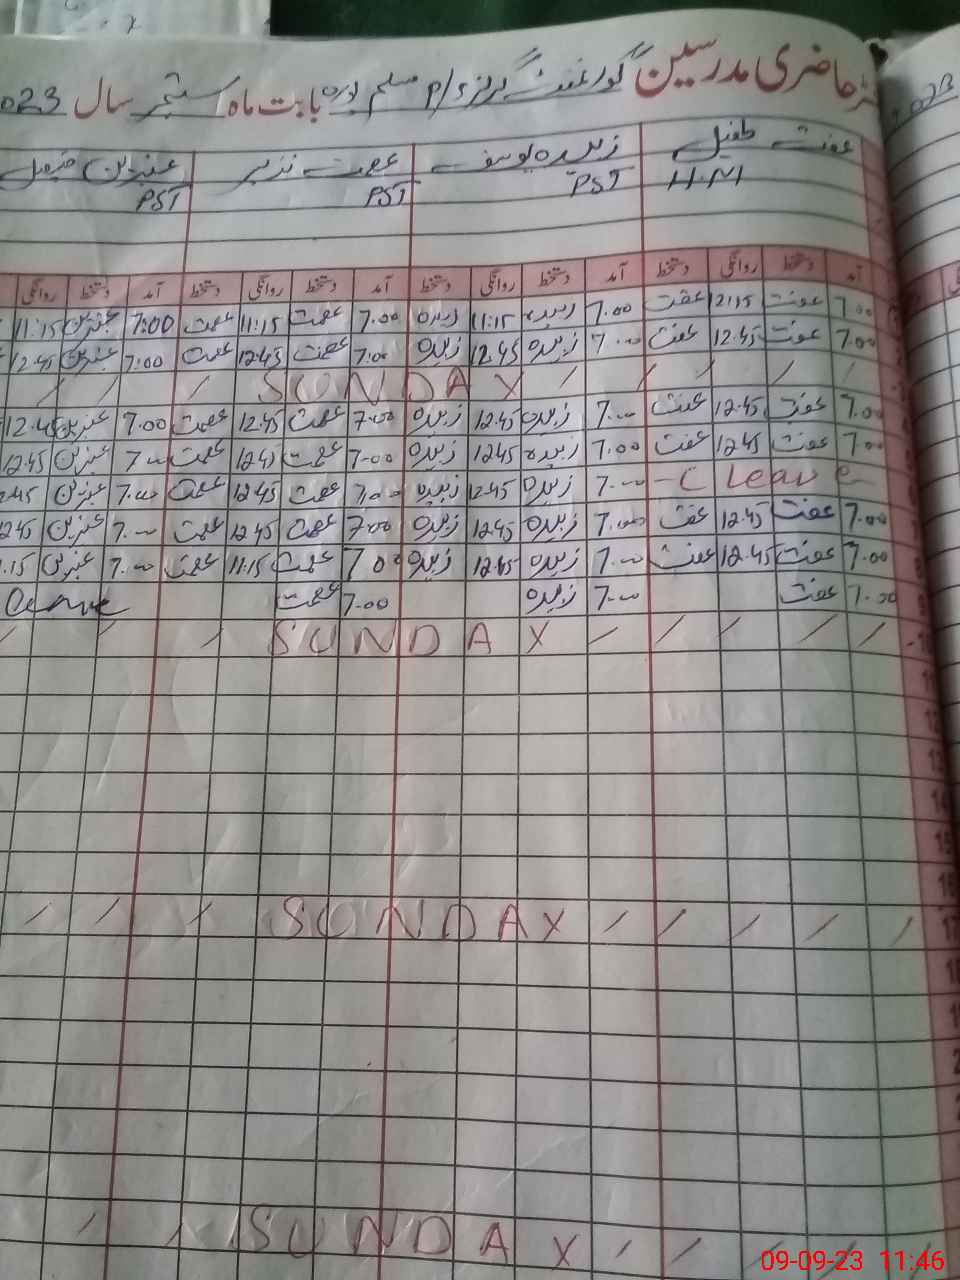 حاضری مدرسین گورنمنٹ گرلز P/S مسلم پورہ بابت ماہ ستمبر سال 023
عفت طفیل زبیدہ یوسف عصمت نذیر عنبرین
H.M PST PST PST
آمد دستخط روانگی دستخط آمد دستخط روانگی دستخط آمد دستخط روانگی دستخط آمد دستخط روانگی
7.00 عفت 12:15 عفت 7.00 زبیدہ 11:15 زبیدہ 7.00 عصمت 11:15 عصمت 7:00 عنبرین 11:15
7.00 عفت 12.45 عفت 7.00 زبیدہ 12.45 زبیدہ 7.00 عصمت 12.45 عصمت 7:00 عنبرین 12.45
SUNDAY
7.00 عفت 12.45 عفت 7.00 زبیدہ 12.45 زبیدہ 7.00 عصمت 12.45 عصمت 7.00 عنبرین 12.4
7.00 عفت 12.45 عفت 7.00 زبیدہ 12.45 زبیدہ 7.00 عصمت 12.45 عصمت 7.00 عنبرین 12.45
C Leave 7.00 زبیدہ 12.45 زبیدہ 7.00 عصمت 12.45 عصمت 7.00 عنبرین 2.45
7.00 عفت 12.45 عفت 7.00 زبیدہ 12.45 زبیدہ 7.00 عصمت 12.45 عصمت 7.00 عنبرین 2.45
7.00 عفت 12.45 عفت 7.00 زبیدہ 12.45 زبیدہ 7.00 عصمت 11.15 عصمت 7.00 عنبرین .15
7.00 عفت 7.00 زبیدہ 7.00 عصمت Leave
SUNDAY
SUNDAY
SUNDAY
09-09-23 11:46